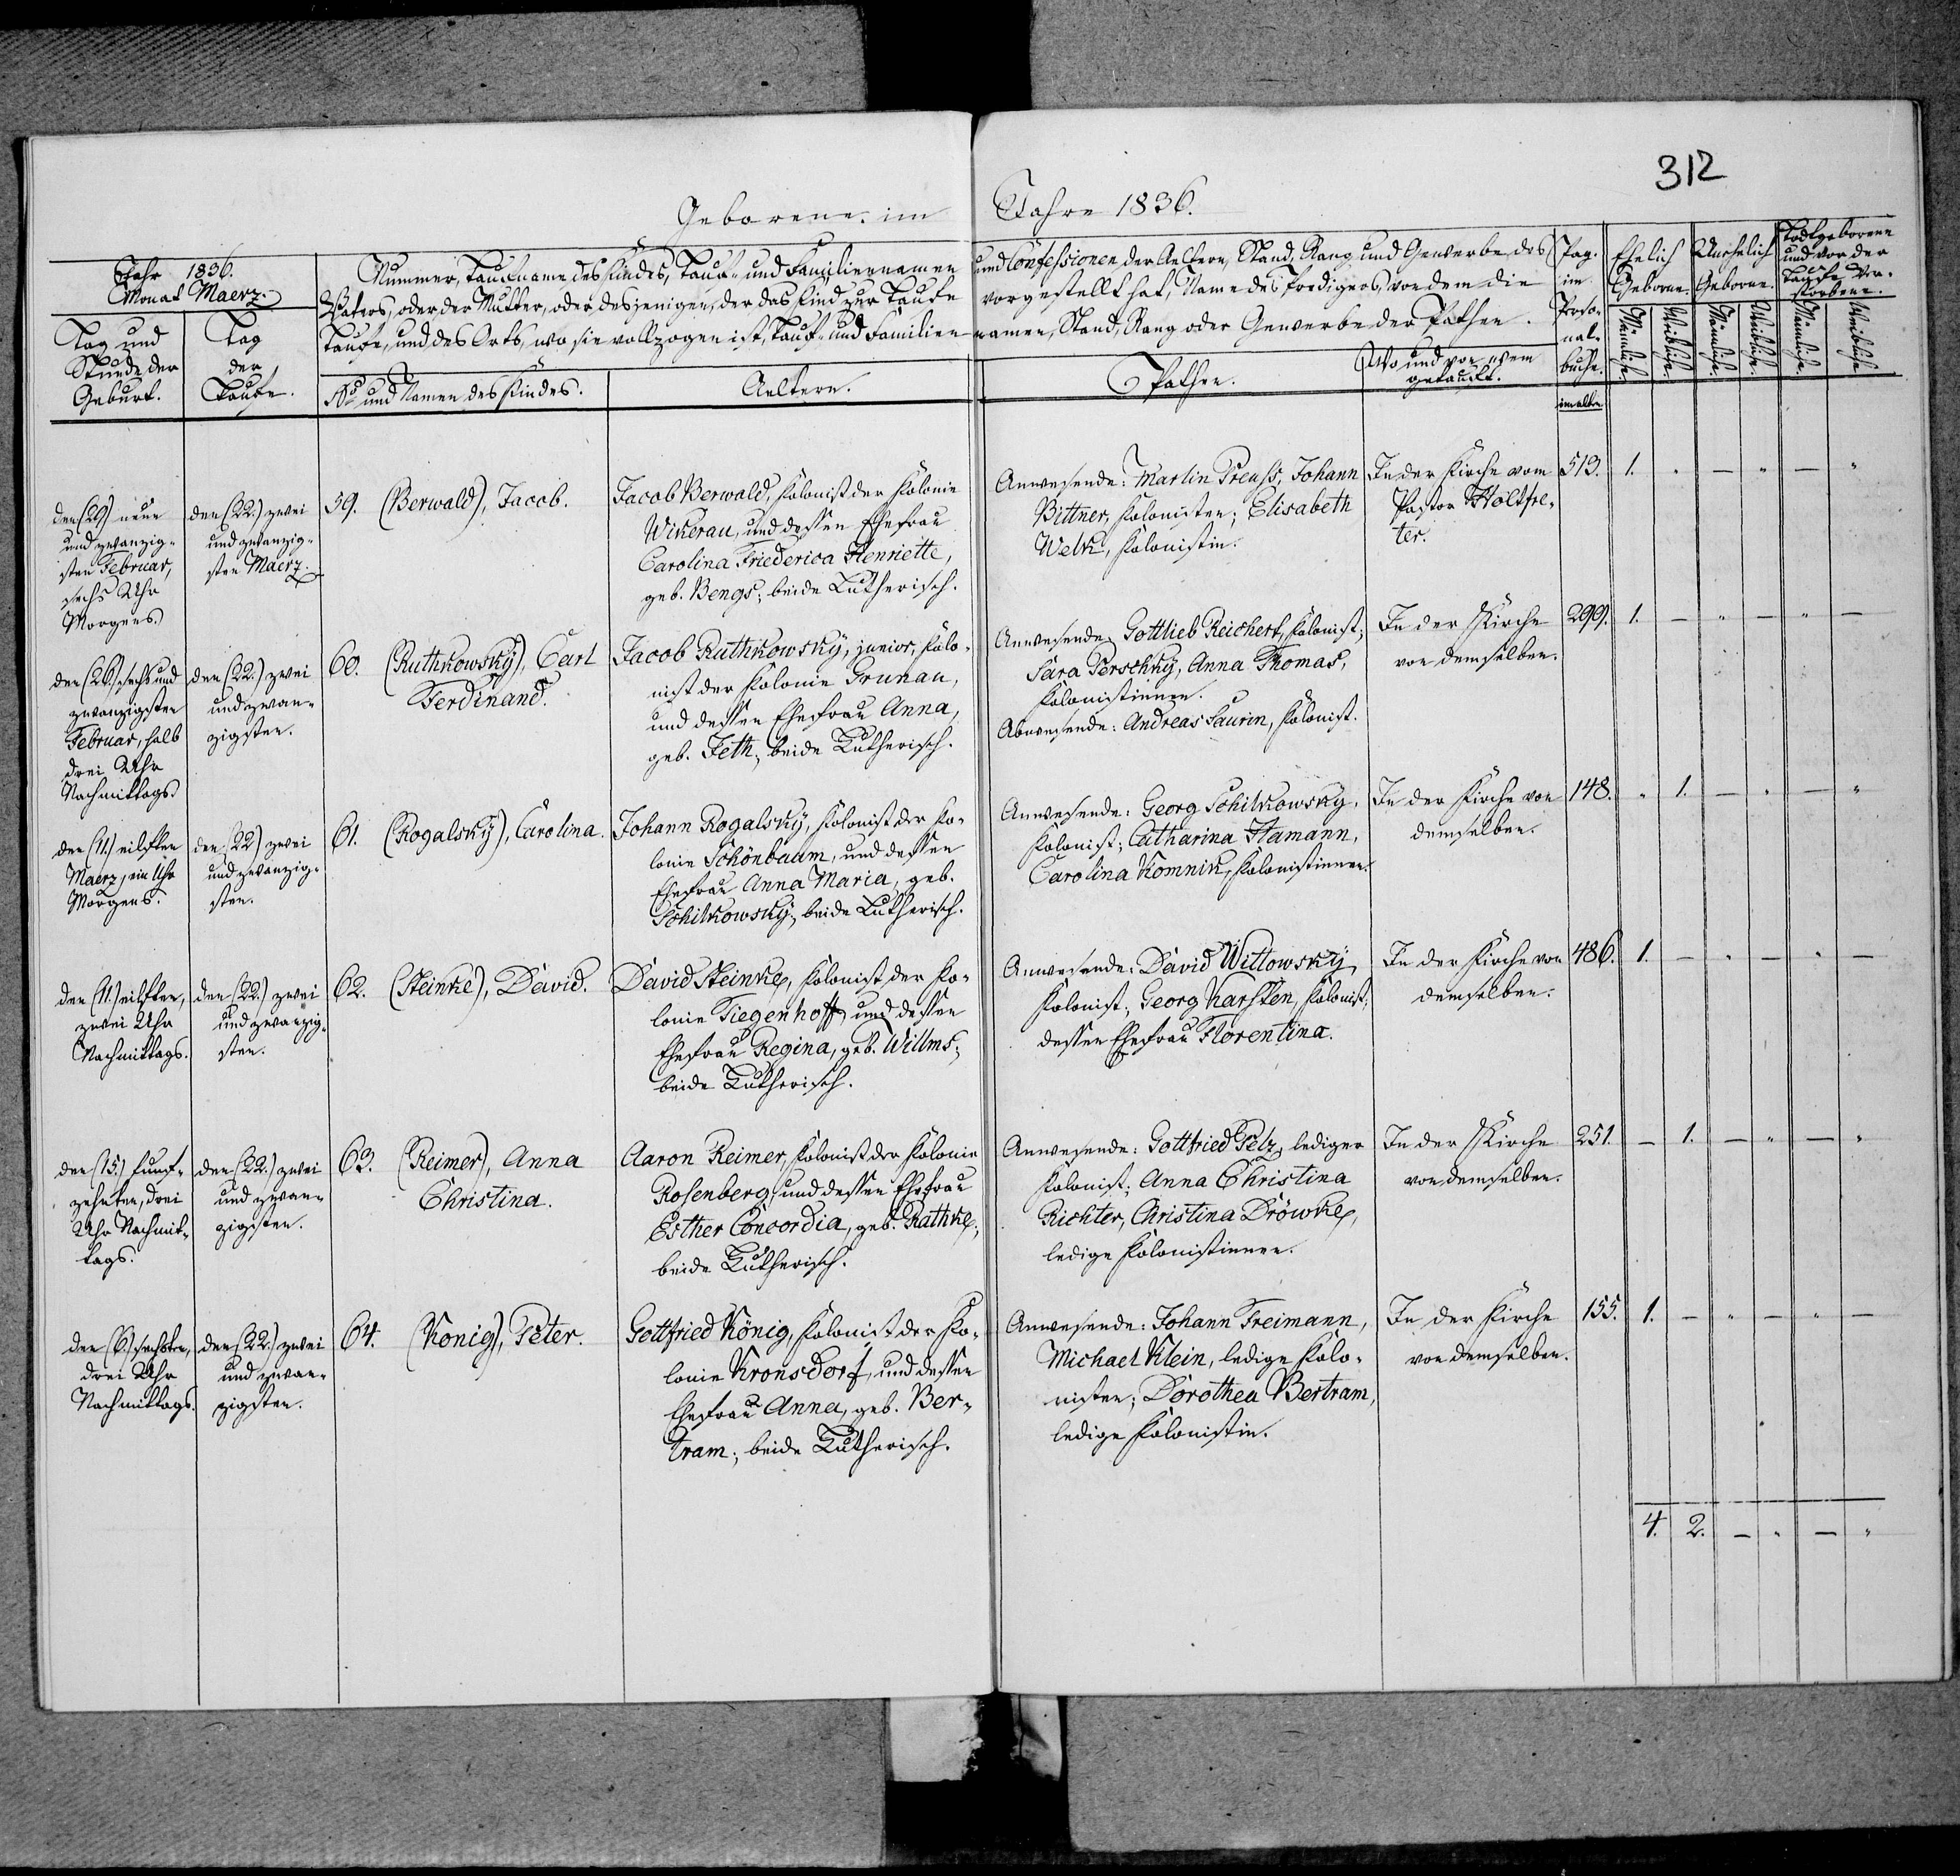 312
Geborene im Jahre 1836.
Jahr 1836.
Monat Maerz.
Tag und
Stunde der
Geburt.
Tag
der
Taufe.
Nummer, Taufname des Kindes, Tauf- und Familiennamen und Confessionen der Aeltern, Stand, Rang und Gewerbe des
Vaters, oder der Mutter, oder desjenigen, der das Kind zur Taufe vorgestellt hat, Name des Predigers, von dem die
Taufe, und des Orts, wo sie vollzogen ist, Tauf- und Familiennamen, Stand, Rang oder Gewerbe der Pathen.
No und Namen des Kindes.
Aeltern.
Pathen.
Wo und von wem
getauft.
Pag.
im
Perso-
nal-
buche.
im alten
Ehelich
Geborne.
Unehelich
Geborne.
Todtgeborene
und vor der
Taufe Ver-
storbene.
Männliche.
Weibliche.
Männliche.
Weibliche.
Männliche.
Weibliche
den (29) neun
und zwanzig-
sten Februar,
sechs Uhr
Morgens.
den (22.) zwei
und zwanzig-
sten Maerz.
59. (Berwald), Jacob.
Jacob Berwald, Kolonist der Kolonie
Wikerau, und dessen Ehefrau
Carolina Friederica Henriette,
geb. Bengs; beide Lutherisch.
Anwesende: Martin Preuss, Johann
Bittner, Kolonisten; Elisabeth
Welk, Kolonistin.
In der Kirche vom
Pastor Holtfre-
ter.
513. 1. " — " — "
den (26.) sechs und
zwanzigsten
Februar, halb
drei Uhr
Nachmittags.
den (22.) zwei
und zwan-
zigsten.
60. (Ruthkowsky), Carl
Ferdinand.
Jacob Ruthkowsky, junior, Kolo-
nist der Kolonie Grunau,
und dessen Ehefrau Anna,
geb. Feth; beide Lutherisch.
Anwesende: Gottlieb Reichert, Kolonist;
Sara Perschky, Anna Thomas,
Kolonistinnen.
Abwesende: Andreas Saurin, Kolonist.
In der Kirche
von demselben.
299. 1. — " — " —
den (11.) eilften
Maerz, ein Uhr
Morgens.
den (22) zwei
und zwanzig-
sten.
61. (Rogalsky), Carolina.
Johann Rogalsky, Kolonist der Ko-
lonie Schönbaum, und dessen
Ehefrau Anna Maria, geb.
Schilkowsky; beide Lutherisch.
Anwesende: Georg Schilkowsky,
Kolonist; Catharina Hamann,
Carolina Komnik, Kolonistinnen.
In der Kirche von
demselben.
148. " 1. — " — "
den (11.) eilften,
zwei Uhr
Nachmittags.
den (22.) zwei
und zwanzig-
sten.
62. (Steinke), David.
David Steinke, Kolonist der Ko-
lonie Tiegenhoff, und dessen
Ehefrau Regina, geb. Willms;
beide Lutherisch.
Anwesende: David Wittowsky,
Kolonist; Georg Karsten, Kolonist;
dessen Ehefrau Florentina.
In der Kirche von
demselben.
486. 1. — " — " —
den (15.) funf-
zehnten, drei
Uhr Nachmit-
tags.
den (22.) zwei
und zwan-
zigsten.
63. (Reimer), Anna
Christina.
Aaron Reimer, Kolonist der Kolonie
Rosenberg, und dessen Ehefrau
Esther Concordia, geb. Rathke;
beide Lutherisch.
Anwesende: Gottfried Pelz, lediger
Kolonist; Anna Christina
Richter, Christina Dröwke,
ledige Kolonistinnen.
In der Kirche
von demselben.
251. — 1. — " — "
den (6.) sechsten,
drei Uhr
Nachmittags.
den (22.) zwei
und zwan-
zigsten.
64. (Konig), Peter.
Gottfried König, Kolonist der Ko-
lonie Kronsdorf, und dessen
Ehefrau Anna, geb. Ber-
tram; beide Lutherisch.
Anwesende: Johann Freimann,
Michael Klein, ledige Kolo-
nisten; Dorothea Bertram,
ledige Kolonistin.
In der Kirche
von demselben.
155. 1. — " — " —
4. 2. — " — "